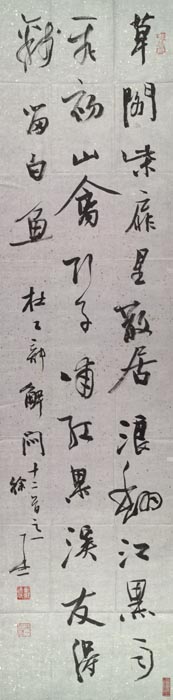 草阁柴扉星散居浪翻江黑雨
飞初山禽引子哺红果溪友得
钱留白鱼
杜工部解闷十二首之一徐